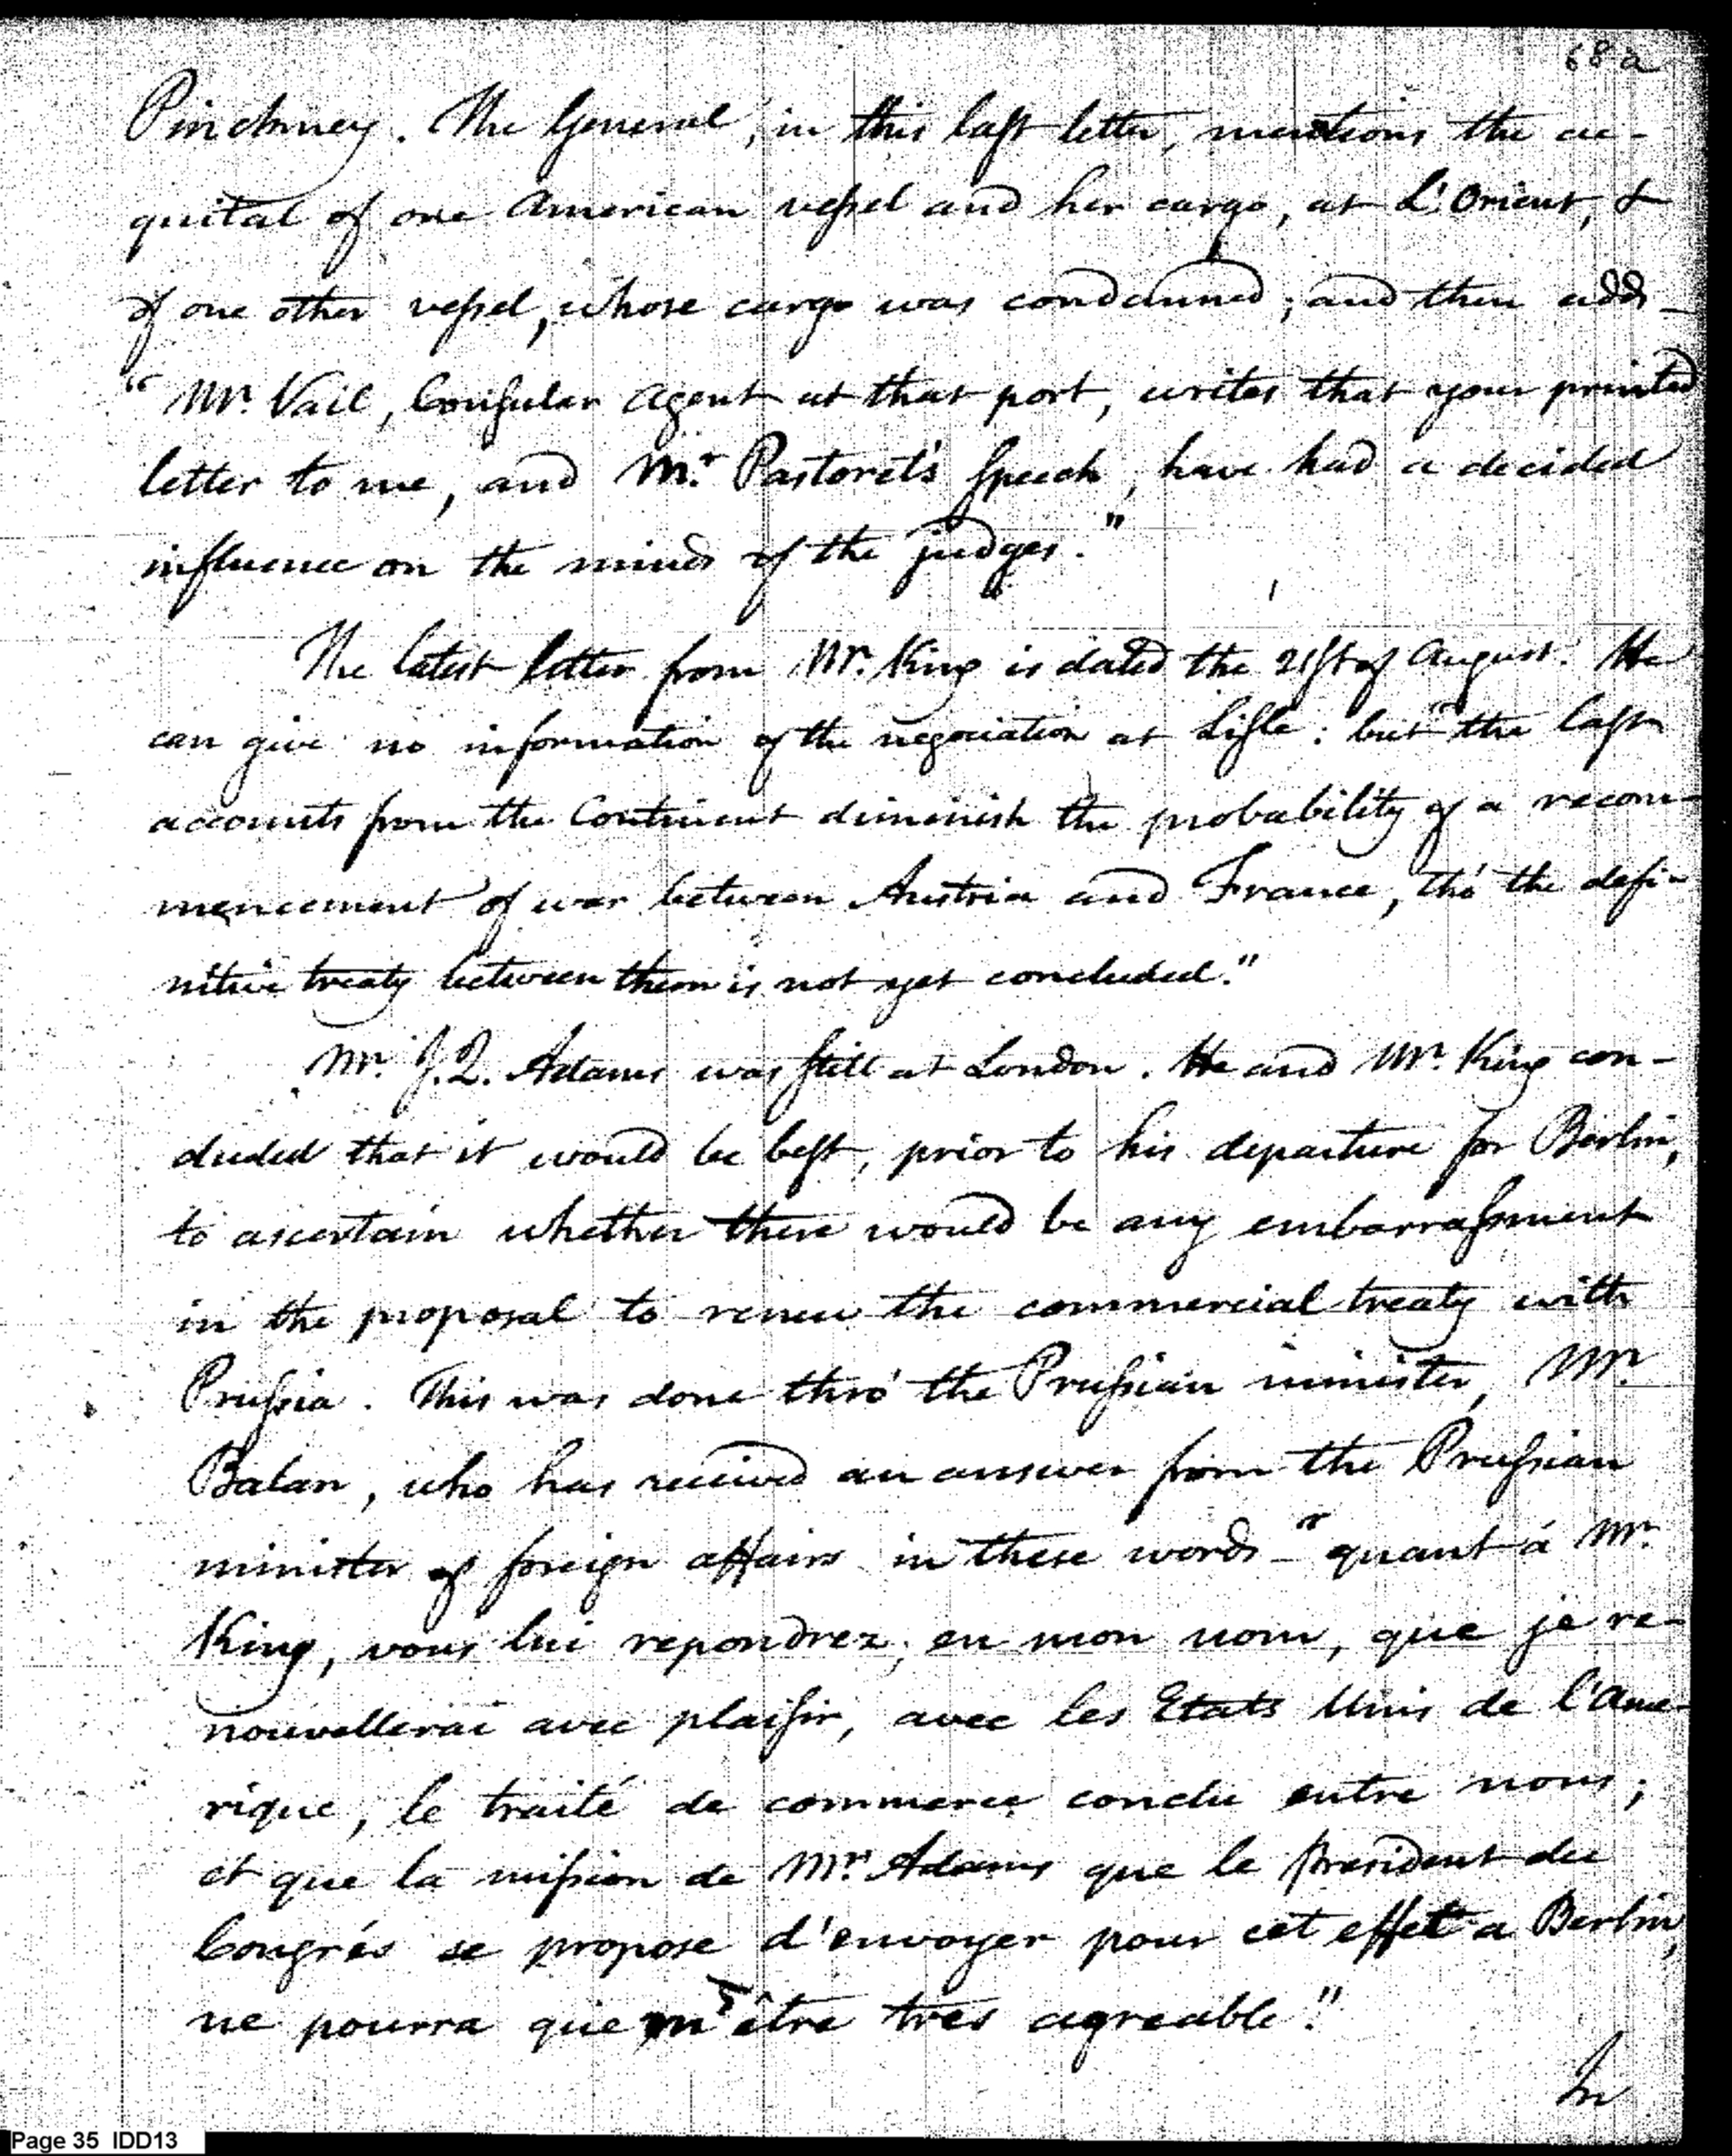 68 a
Pinckney. The General, in this last letter, mentions the ac-
quital of one American vessel and her cargo, at L'Orient, &
of one other vessel, whose cargo was condemned; and then adds —
"Mr. Vail, Consular Agent at that port, writes that your printed
letter to me, and Mr. Pastoret's speech, have had a decided
influence on the minds of the judges."
The latest letter from Mr. King is dated the 21st of August. He
can give no information of the negociation at Lisle: but "the last
accounts from the Continent diminish the probability of a recom-
mencement of war between Austria and France, tho' the defi-
nitive treaty between them is not yet concluded."
Mr. J. Q. Adams was still at London. He and Mr. King con-
cluded that it would be best, prior to his departure for Berlin,
to ascertain whether there would be any embarrassment
in the proposal to renew the commercial treaty with
Prussia. This was done thro' the Prussian minister, Mr.
Balan, who has received an answer from the Prussian
minister of foreign affairs in these words — "quant á Mr.
King, vous lui repondrez, en mon nom, que je re-
nouvellerai avec plaisir, avec les Etats Unis de l'Ame-
rique, le traité de commerce conclu entre nous;
et que la mission de Mr. Adams que le President du
Congrés se propose d'envoyer pour cet effet a Berlin,
ne pourra que m'être tres agreable."
In
Page 35 IDD13